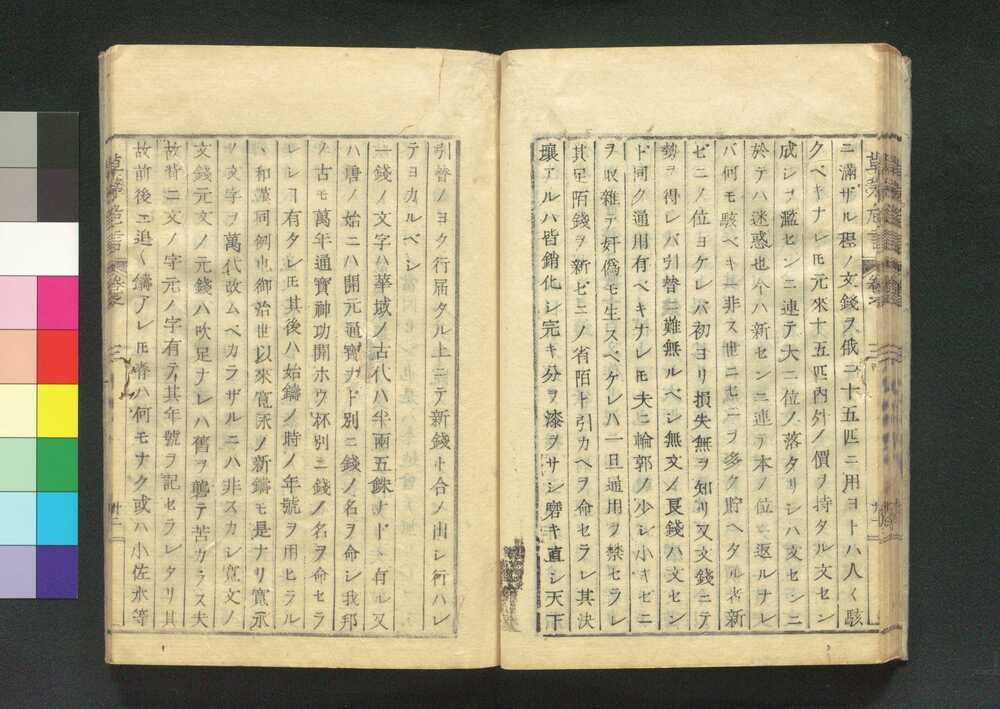 ニ滿ザル程ノ文錢ヲ俄ニ十五匹ニ用ヨトハ人〱駭
クベキナレ𪜈元來十五匹内外ノ價ヲ持タル文セン
成シヲ濫センニ連テ大ニ位ノ落タリシハ文センニ
於テハ迷惑也今ハ新センニ連テ本ノ位ニ返ルナレ
バ何モ駭ベキ𪜈非ス世ニセニヲ多ク貯ヘタル者新
ゼニノ位ヨケレバ初ヨリ損失無ヲ知リ又文錢ニテ
勢ヲ得レバ引替ニ難無ルベシ無文ノ良錢ハ文セン
ド同ク通用有ベキナレ𪜈夫ニ輪郭ノ少シ小キゼニ
ヲ収雜テ奸僞モ生スベケレハ一旦通用ヲ禁セラレ
其足陌錢ヲ新ゼニノ省陌ト引カヘヲ命セラレ其決
壞アルハ皆銷化シ完キ分ヲ漆ヲサシ磨キ直シ天下
引替ノヨク行届タル上ニテ新錢ト合ノ出シ行ハレ
テヨカルベシ
一錢ノ文字ハ華域ノ古代ハ半兩五銖ナド丶有レ又
ハ唐ノ始ニハ開元通寳ナド別ニ錢ノ名ヲ命シ我邦
ノ古モ萬年通寳神功開ホウ杯別ニ錢ノ名ヲ命セラ
レシヿ有タレ𪜈其後ハ始鑄ノ時ノ年號ヲ用ヒラル
丶和漢同例也御治世以來寛永ノ新鑄モ是ナリ寛永
ノ文字ヲ萬代改ムベカラザルニハ非スカシ寛文ノ
文錢元文ノ元錢ハ吹足ナレハ舊ヲ襲テ苦カラス夫
故背ニ文ノ字元ノ字有テ其年號ヲ記セラレタリ其
故前後ニ追〱鑄アレ𪜈背ハ何モナク或ハ小佐水等
草茅危言
卷之
三
廿二